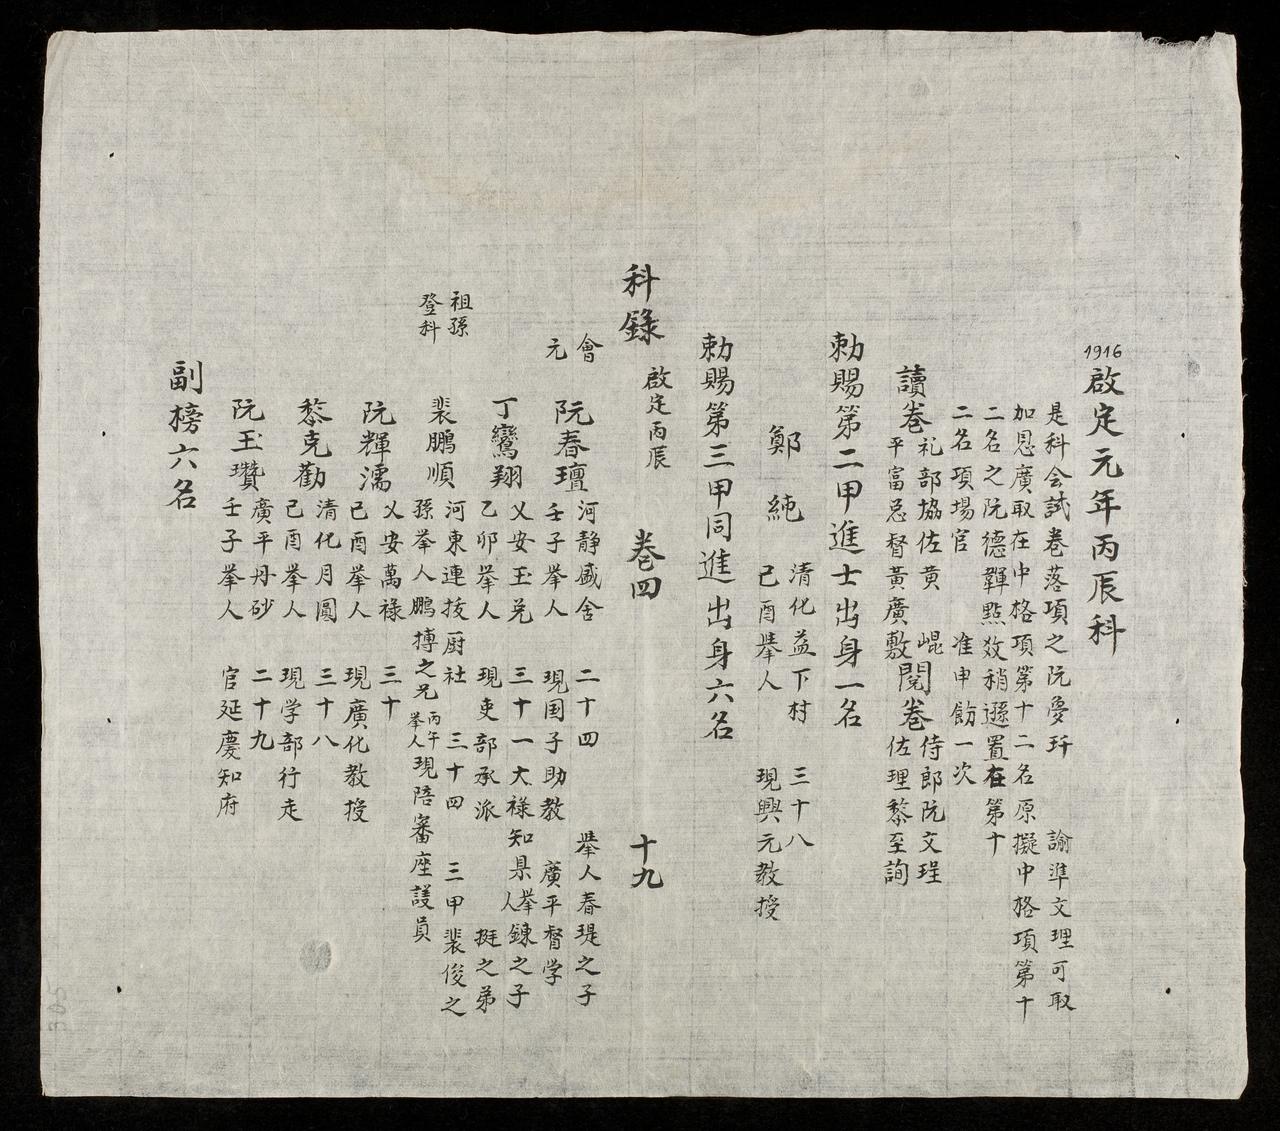 1916
啟定元年丙辰科
是科会試卷落項之阮㝱玕 諭準文理可取
加恩廣取在中格項第十二名原擬中格項第十
二名之阮德韗㸃效稍遜置在第十
二名項場官 准申飭一次
讀卷
礼部協佐黃 崐
平富总督黃廣敷
閱卷
侍郎阮文珵
佐理黎至詢
勅賜第二甲進士出身一名
鄭 純
清化益下村 三十八
己酉舉人 現興元教授
勅賜第三甲同進出身六名
科錄 啟定丙辰 卷四 十九
會元
阮春璮
河静盛舍 二十四 舉人春瑅之子
壬子舉人 現国子助教 廣平督学
丁鸞翔
乂安玉兑 三十一 大禄知県舉人鍊之子
乙卯舉人 現吏部承派 挺之弟
祖孫登科
裴鵬順
河東連㧞厨社 三十四 三甲裴俊之
孫挙人鵬摶之兄 丙午挙人 現陪審座護員
阮輝濡
乂安萬禄 三十
己酉舉人 現廣化教授
黎克勸
清化月圓 三十八
己酉舉人 現学部行走
阮玉瓚
廣平丹砂 二十九
壬子舉人 官延慶知府
副榜六名